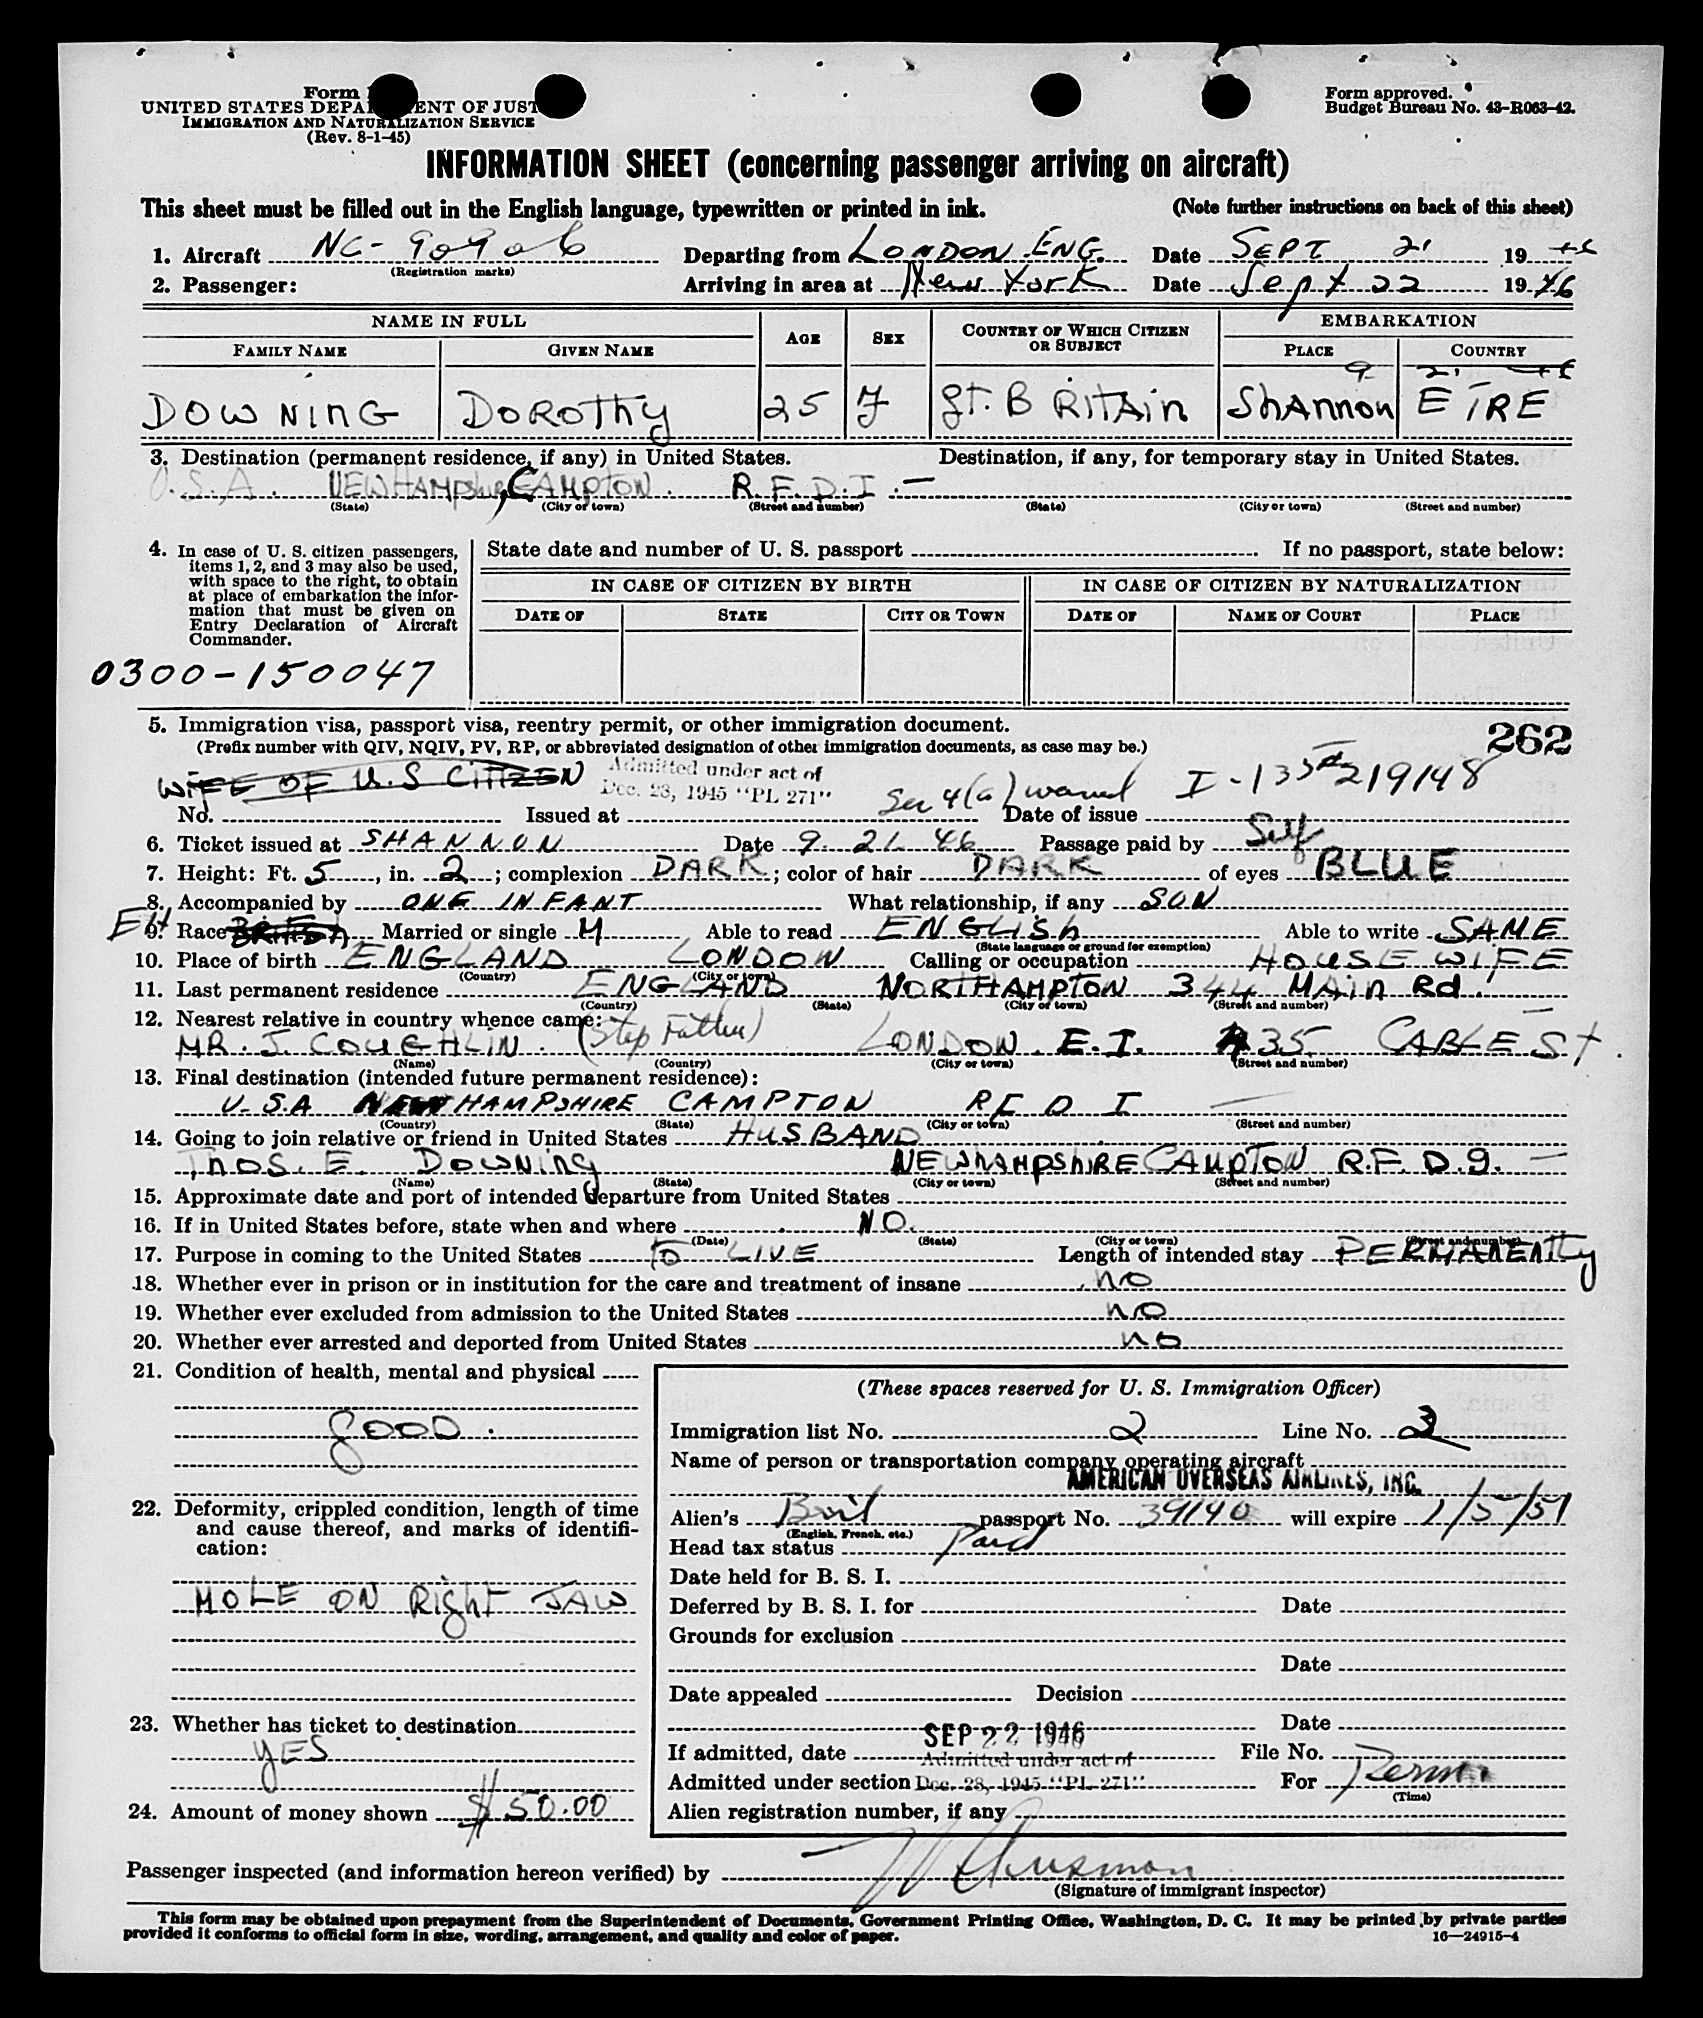 Form
UNITED STATES DEPA ENT OF JUST
IMMIGRATION AND NATURALIZATION SERVICE
(Rev. 8-1-45)
Form approved.
Budget Bureau No. 43-R063-42.
INFORMATION SHEET (concerning passenger arriving on aircraft)
This sheet must be filled out in the English language, typewritten or printed in ink. (Note further instructions on back of this sheet)
1. Aircraft NC-90906 Departing from LONDON ENG. Date SEPT 21 19 46
(Registration marks)
2. Passenger: Arriving in area at New York Date Sept 22 19 46
NAME IN FULL AGE SEX COUNTRY OF WHICH CITIZEN OR SUBJECT EMBARKATION
FAMILY NAME GIVEN NAME PLACE COUNTRY
9 21 46
DOWNING DOROTHY 25 F GT. BRITAIN SHANNON EIRE
3. Destination (permanent residence, if any) in United States. Destination, if any, for temporary stay in United States.
U.S.A. NEW HAMPSHIRE, CAMPTON. R.F.D.I.—
(State) (City or town) (Street and number) (State) (City or town) (Street and number)
4. In case of U. S. citizen passengers, items 1, 2, and 3 may also be used, with space to the right, to obtain at place of embarkation the information that must be given on Entry Declaration of Aircraft Commander.
State date and number of U. S. passport If no passport, state below:
IN CASE OF CITIZEN BY BIRTH IN CASE OF CITIZEN BY NATURALIZATION
DATE OF STATE CITY OR TOWN DATE OF NAME OF COURT PLACE
0300-150047
5. Immigration visa, passport visa, reentry permit, or other immigration document.
(Prefix number with QIV, NQIV, PV, RP, or abbreviated designation of other immigration documents, as case may be.)
262
WIFE OF U.S CITIZEN Admitted under act of Dec. 28, 1945 "PL 271" Sec 4(a) waived I-133 #219148
No. Issued at Date of issue
6. Ticket issued at SHANNON Date 9. 21. 46 Passage paid by Self
7. Height: Ft. 5, in. 2; complexion DARK; color of hair DARK of eyes BLUE
8. Accompanied by ONE INFANT What relationship, if any SON
EH
9. Race BRITISH Married or single M Able to read ENGLISH Able to write SAME
(State language or ground for exemption)
10. Place of birth ENGLAND LONDON Calling or occupation HOUSEWIFE
(Country) (City or town)
11. Last permanent residence ENGLAND NORTHAMPTON 344 MAIN Rd.
(Country) (State) (City or town) (Street and number)
12. Nearest relative in country whence came:
MR. J. COUGHLIN. (Step Father) LONDON. E.I. 35 CABLE ST.
(Name) (Country) (City or town) (Street and number)
13. Final destination (intended future permanent residence):
U.S.A NEW HAMPSHIRE CAMPTON RFDI —
(Country) (State) (City or town) (Street and number)
14. Going to join relative or friend in United States HUSBAND
THOS. E. DOWNING NEWHAMPSHIRE CAMPTON R.F.D.I. —
(Name) (State) (City or town) (Street and number)
15. Approximate date and port of intended departure from United States
16. If in United States before, state when and where NO.
(Date) (State) (City or town) (Street and number)
17. Purpose in coming to the United States TO LIVE Length of intended stay PERMANENTLY
18. Whether ever in prison or in institution for the care and treatment of insane NO
19. Whether ever excluded from admission to the United States NO
20. Whether ever arrested and deported from United States NO
21. Condition of health, mental and physical
GOOD.
22. Deformity, crippled condition, length of time and cause thereof, and marks of identification:
MOLE ON RIGHT JAW
23. Whether has ticket to destination
YES
24. Amount of money shown $50.00
(These spaces reserved for U. S. Immigration Officer)
Immigration list No. 2 Line No. 3
Name of person or transportation company operating aircraft
AMERICAN OVERSEAS AIRLINES, INC.
Alien's Brit passport No. 39140 will expire 1/5/51
(English, French, etc.)
Head tax status Paid
Date held for B. S. I.
Deferred by B. S. I. for Date
Grounds for exclusion
Date
Date appealed Decision
Date
If admitted, date SEP 22 1946 File No.
Admitted under section Admitted under act of Dec. 28, 1945 "PL 271" For Perm
(Time)
Alien registration number, if any
Passenger inspected (and information hereon verified) by
(Signature of immigrant inspector)
This form may be obtained upon prepayment from the Superintendent of Documents, Government Printing Office, Washington, D. C. It may be printed by private parties
provided it conforms to official form in size, wording, arrangement, and quality and color of paper. 16—24915-4